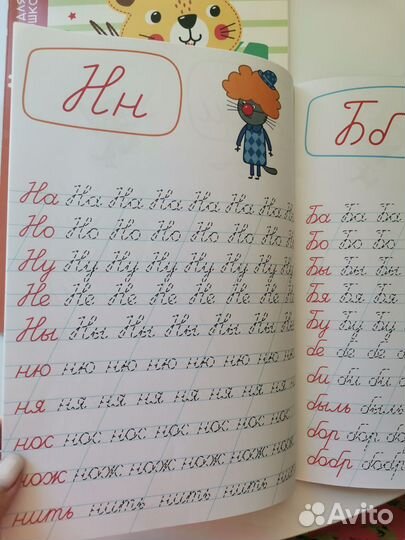 Нн
На На На На На На На Н
Но Но Но Но Но Но Но Н
Ну Ну Ну Ну Ну Ну Ну Ну
Не Не Не Не Не Не Не Н
Ны Ны Ны Ны Ны Ны
ню ню ню ню ню ню ню ню
ня ня ня ня ня ня ня ня
нос нос нос нос нос нос нос
нож нож нож нож нож нож
нить нить нить нить нить
Бб
Ба Ба Ба
Бо Бо Бо
Бы Бы Бы
Бя Бя Бя
Бу Бу Бу
бе бе бе
би би би
быль быль
бор бор бор
бобр бобр
Avito